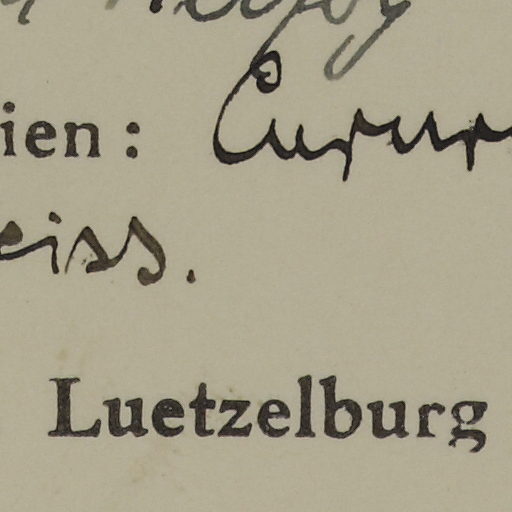 ien: Curur
eiss.
Luetzelburg